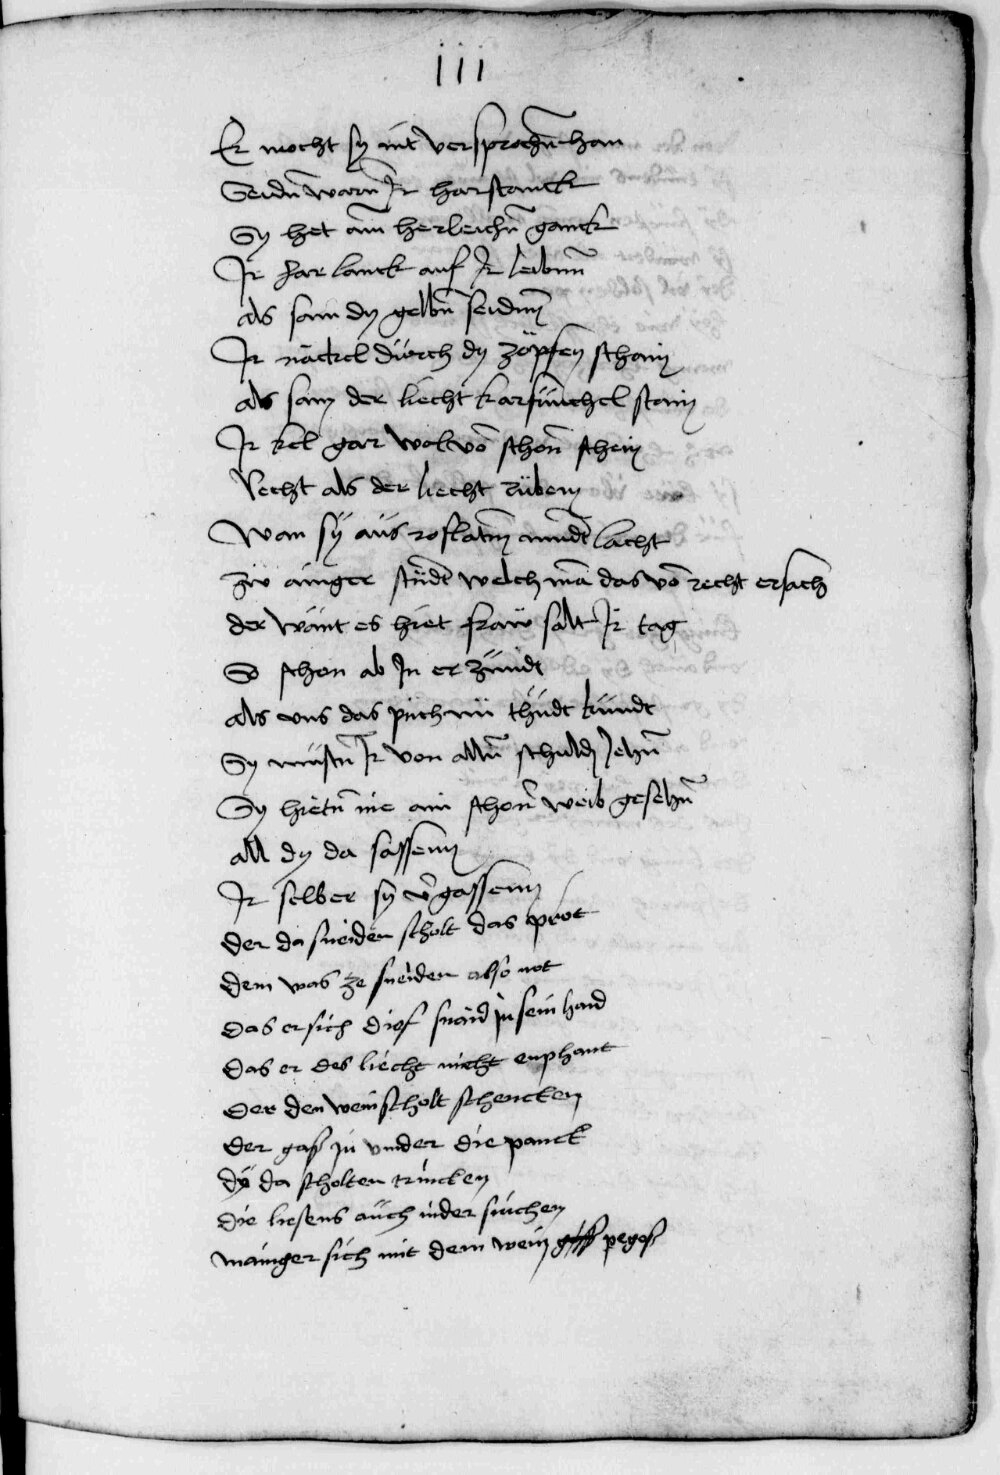 iii
Er mocht sy nit versprochn̄ han
Seidn̄ warn̄ Ir harstanck
Sy het ain̄ herleichn̄ ganck
Ir har lanck auf Ir leibnn̄
als sam dy gelbn̄ seidnn
Ir näckel dürch dy zöpfen schain
als sam der liecht karfünchel stain
Ir kel gar wol vō schon̄ schein
Recht als der liecht rüben
Wan sÿ aüs rosslatn̄ mündt lacht
zw ainger stündt welch mā das vō recht ersach
der wänt es hiet fraw salt Ir tag
So schon ab In er zündt
als vns das püch nü thüdt kündt
Sy müstn̄ Ir von alln̄ schuldn Jehn̄
Sy hietn̄ nie ain schon̄ weib gesehn̄
all dy da sassenn
Ir selber sy v̄gassenn
der da sneiden scholt das prot
dem was ze sneiden also not
das er sich dief snaid in sein hand
das er des liecht nicht enphant
Der den wein scholt schencken
der gass in vnder die panck
dÿ da scholten trincken
die liesens auch nider sincken
mainger sich mit dem wein pegoss